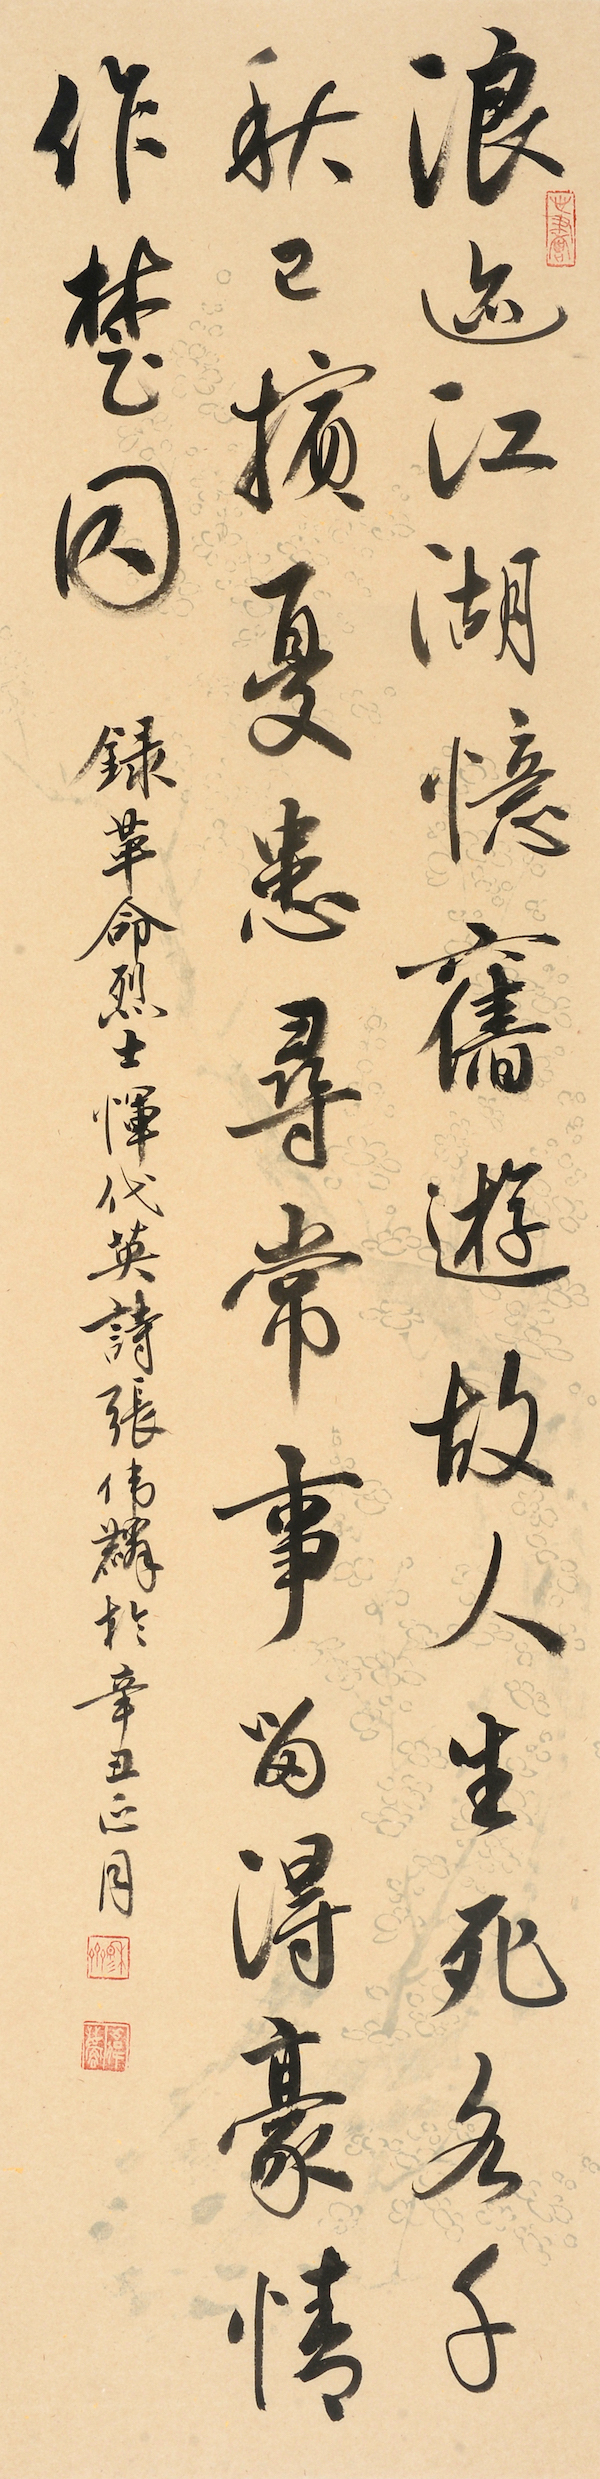 浪迹江湖憶舊遊故人生死各千
秋已擯憂患尋常事留得豪情
作楚囚
錄革命烈士惲代英詩張偉麟於辛丑正月